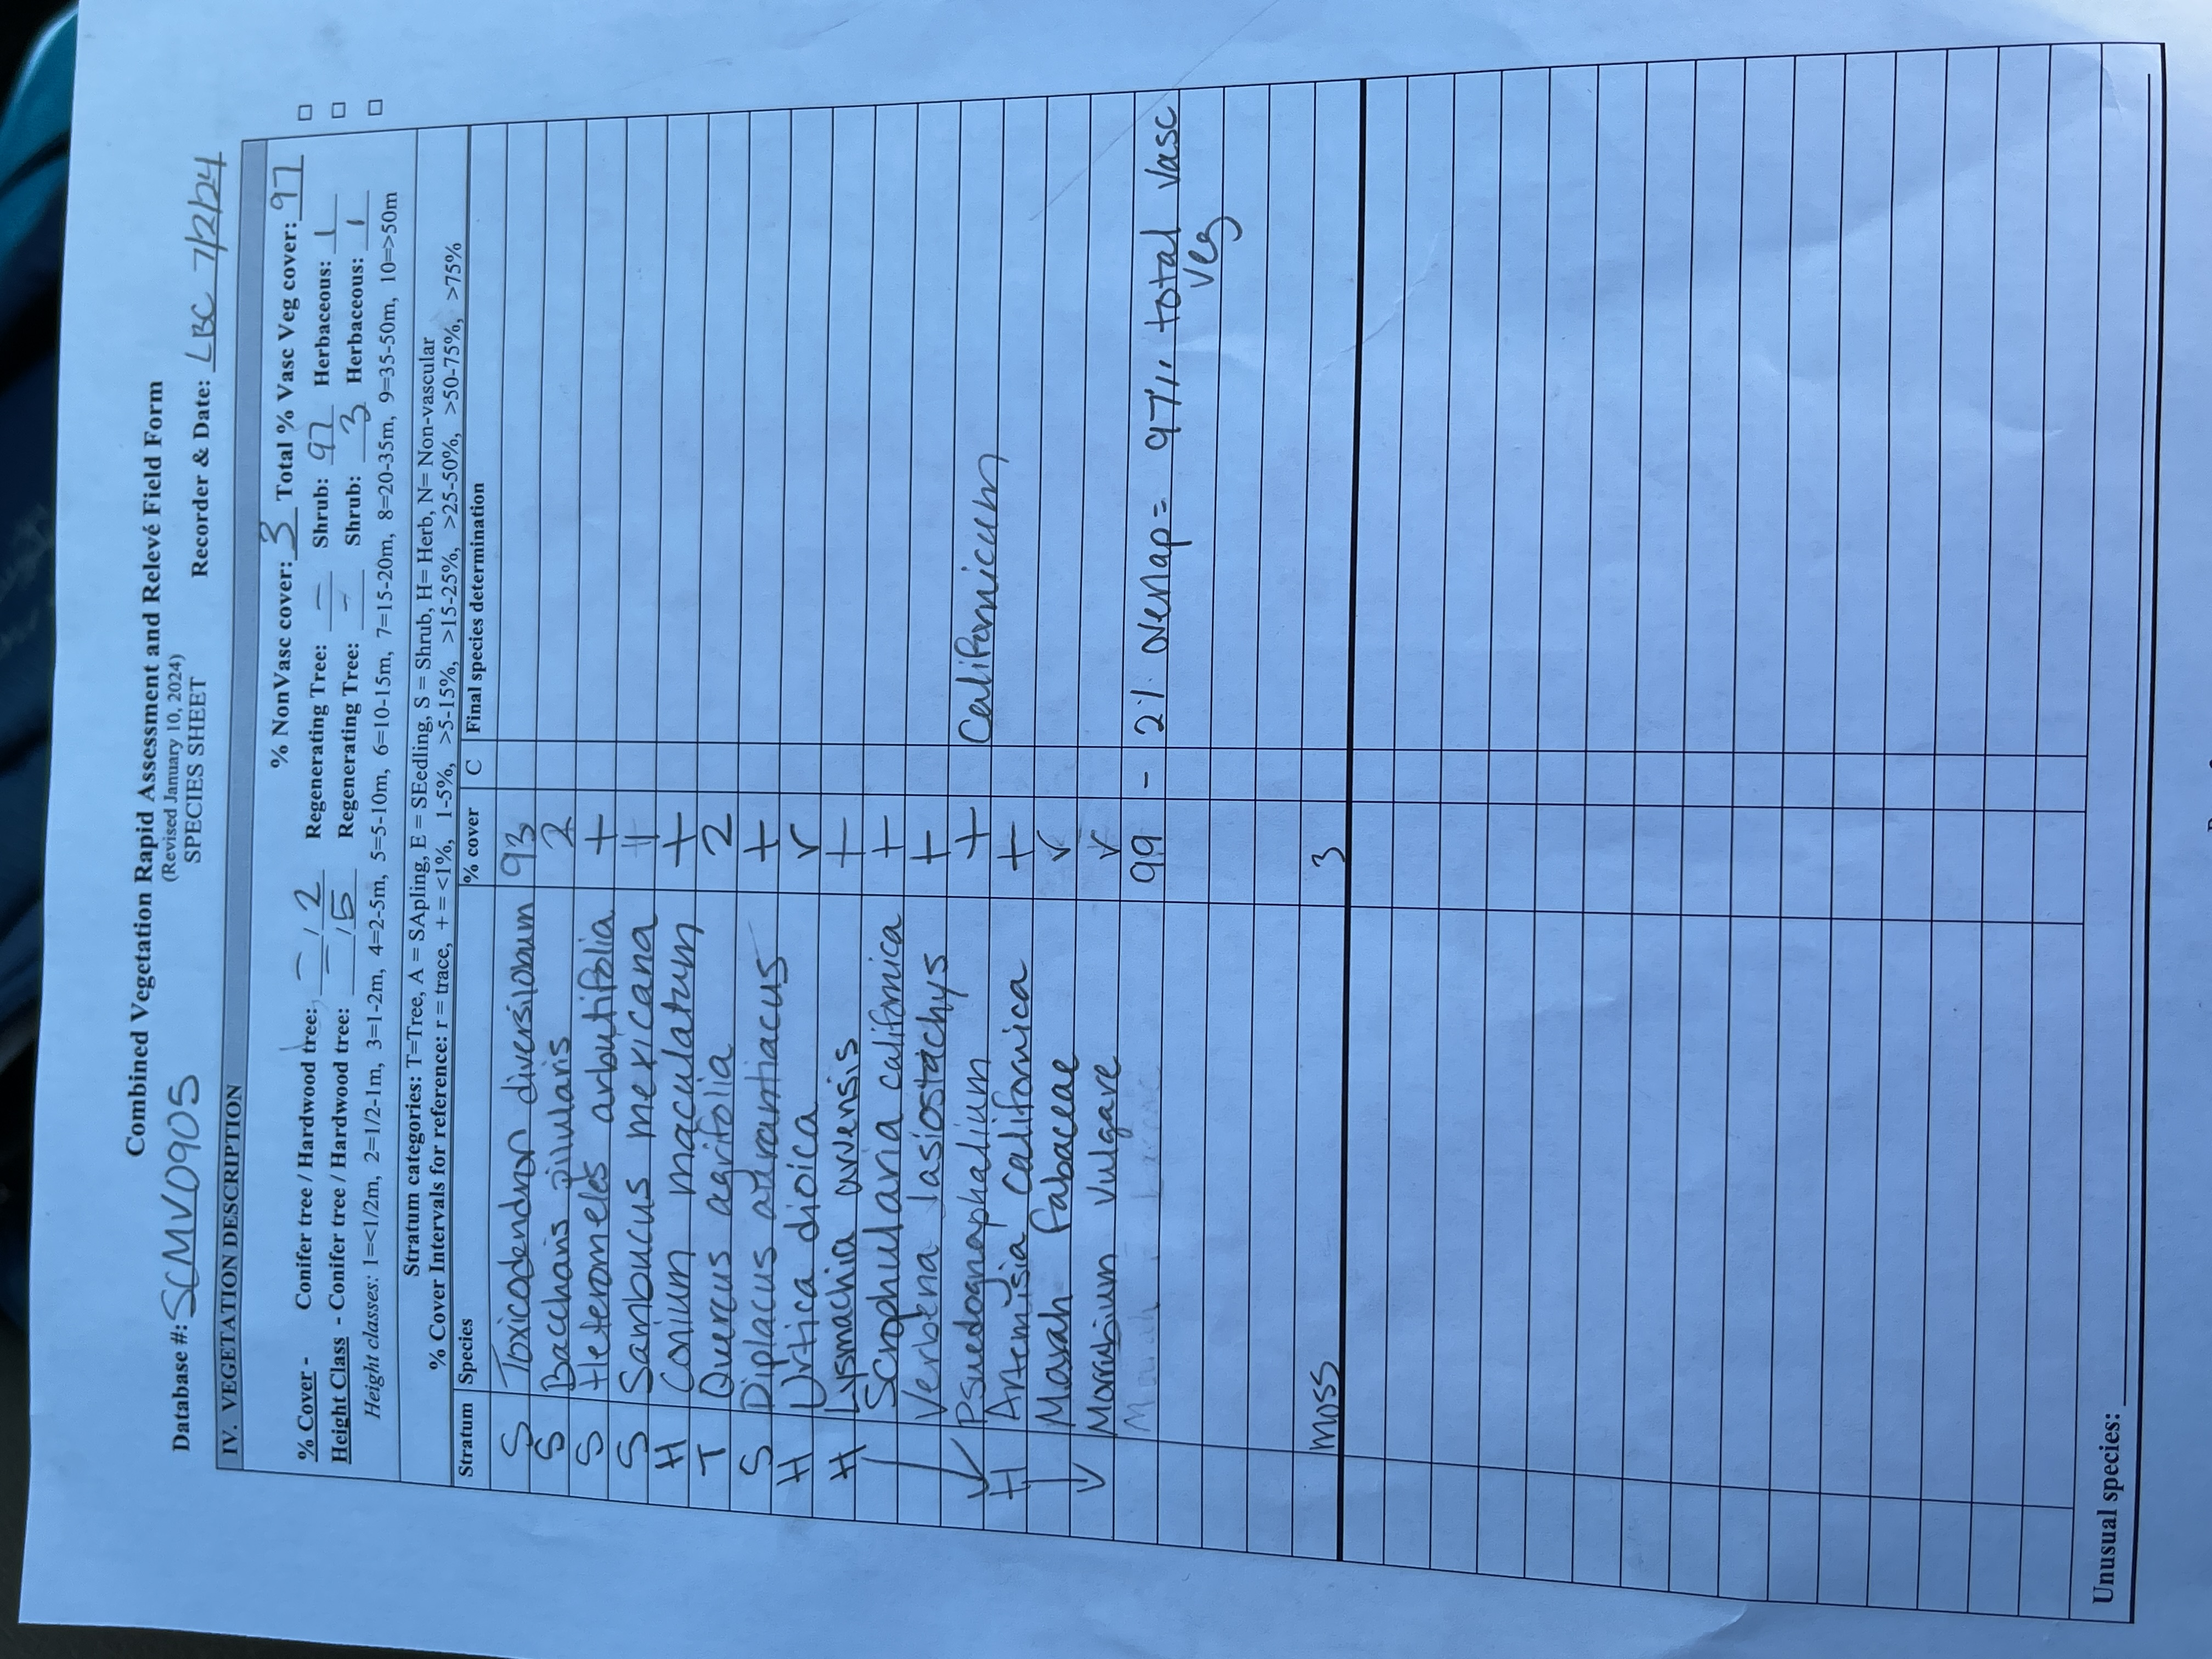 Combined Vegetation Rapid Assessment and Relevé Field Form
(Revised January 10, 2024)
SPECIES SHEET
Database #: SCMV0905 Recorder & Date: LBC 7/2/24
IV. VEGETATION DESCRIPTION
% NonVasc cover: 3 Total % Vasc Veg cover: 97 □
% Cover - Conifer tree / Hardwood tree: — / 2 Regenerating Tree: — Shrub: 97 Herbaceous: 1 □
Height Class - Conifer tree / Hardwood tree: — / 5 Regenerating Tree: - Shrub: 3 Herbaceous: 1 □
Height classes: 1=<1/2m, 2=1/2-1m, 3=1-2m, 4=2-5m, 5=5-10m, 6=10-15m, 7=15-20m, 8=20-35m, 9=35-50m, 10=>50m
Stratum categories: T=Tree, A = SApling, E = SEedling, S = Shrub, H= Herb, N= Non-vascular
% Cover Intervals for reference: r = trace, + = <1%, 1-5%, >5-15%, >15-25%, >25-50%, >50-75%, >75%
Stratum Species % cover C Final species determination
S Toxicodendron diversilobum 93
S Baccharis pilularis 2
S Heteromeles arbutifolia +
S Sambucus mexicana
H Conium maculatum +
T Quercus agrifolia 2
S Diplacus aurantiacus +
H Urtica dioica r
H Lysmachia arvensis +
Scrophularia californica +
Verbena lasiostachys +
↓ Psuedognaphalium + Californicum
H Artemisia californica +
Marah fabaceae r
↓ Marrubium vulgare r
99 - 2% overlap = 97% total vasc
veg
moss 3
Unusual species: